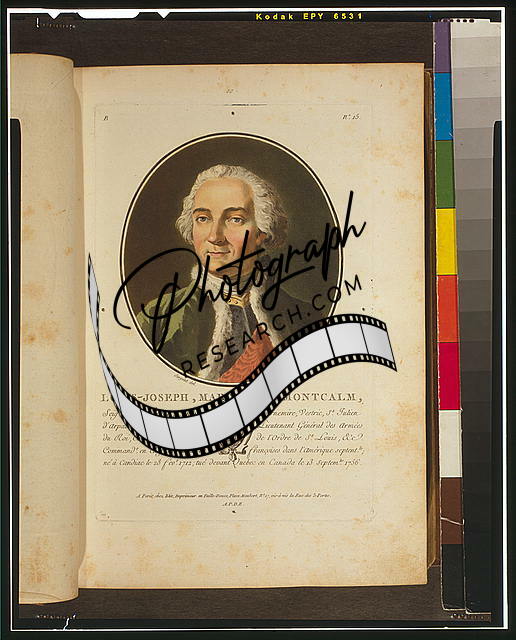 Kodak EPY 6531
22
B
Nº 15.
Photograph
RESEARCH.COM
-JOSEPH, MAR MONTCALM,
Vestric, St. Julien
Lieutenant Général des Armées
du Roi, de l'Ordre de St. Louis, &c.
Command. en françoises dans l'Amérique septent.le
né à Candiac le 28 fév. 1712; tué devant Quebec en Canada le 13 Septemb. 1756.
A Paris, chez Blin, Imprimeur en Taille-Douce, Place Maubert, Nº 17, vis-à-vis la Rue des 3 Portes.
A.P.D.R.